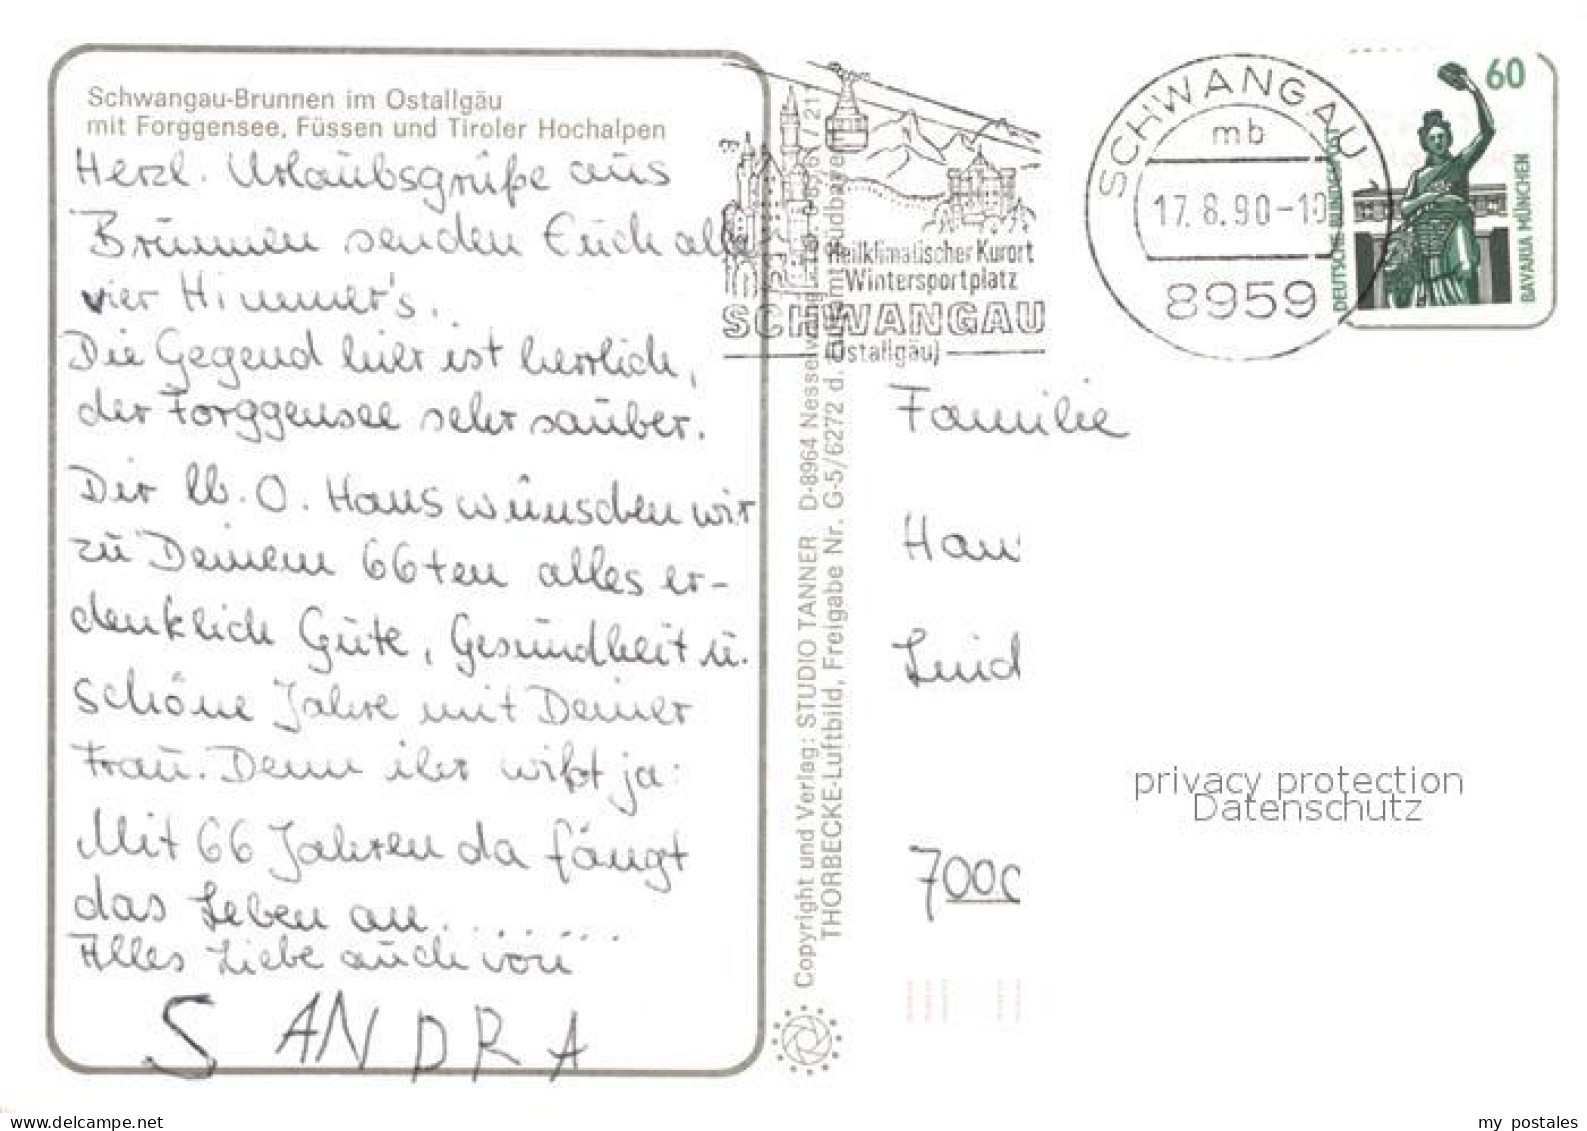 Schwangau-Brunnen im Ostallgäu
mit Forggensee, Füssen und Tiroler Hochalpen
Herzl. Urlaubsgrüße aus
Brunnen senden Euch alle
vier Himmer's.
Die Gegend hier ist herrlich,
der Forggensee sehr sauber.
Dir lb. O. Hans wünschen wir
zu Deinem 66ten alles er-
denklich Gute, Gesundheit u.
schöne Jahre mit Deiner
Frau. Denn ihr wißt ja:
Mit 66 Jahren da fängt
das Leben an.......
Alles Liebe auch von
SANDRA
Copyright und Verlag: STUDIO TANNER D-8964 Nesselwang
THORBECKE-Luftbild, Freigabe Nr. G-5/6272 d.
Heilklimatischer Kurort
Wintersportplatz
SCHWANGAU
(Ostallgäu)
SCHWANGAU 1
mb
17.8.90-10
8959
60
DEUTSCHE BUNDESPOST
BAVARIA MÜNCHEN
Familie
Han
Lind
7000
privacy protection
Datenschutz
delcampe.net
my postales